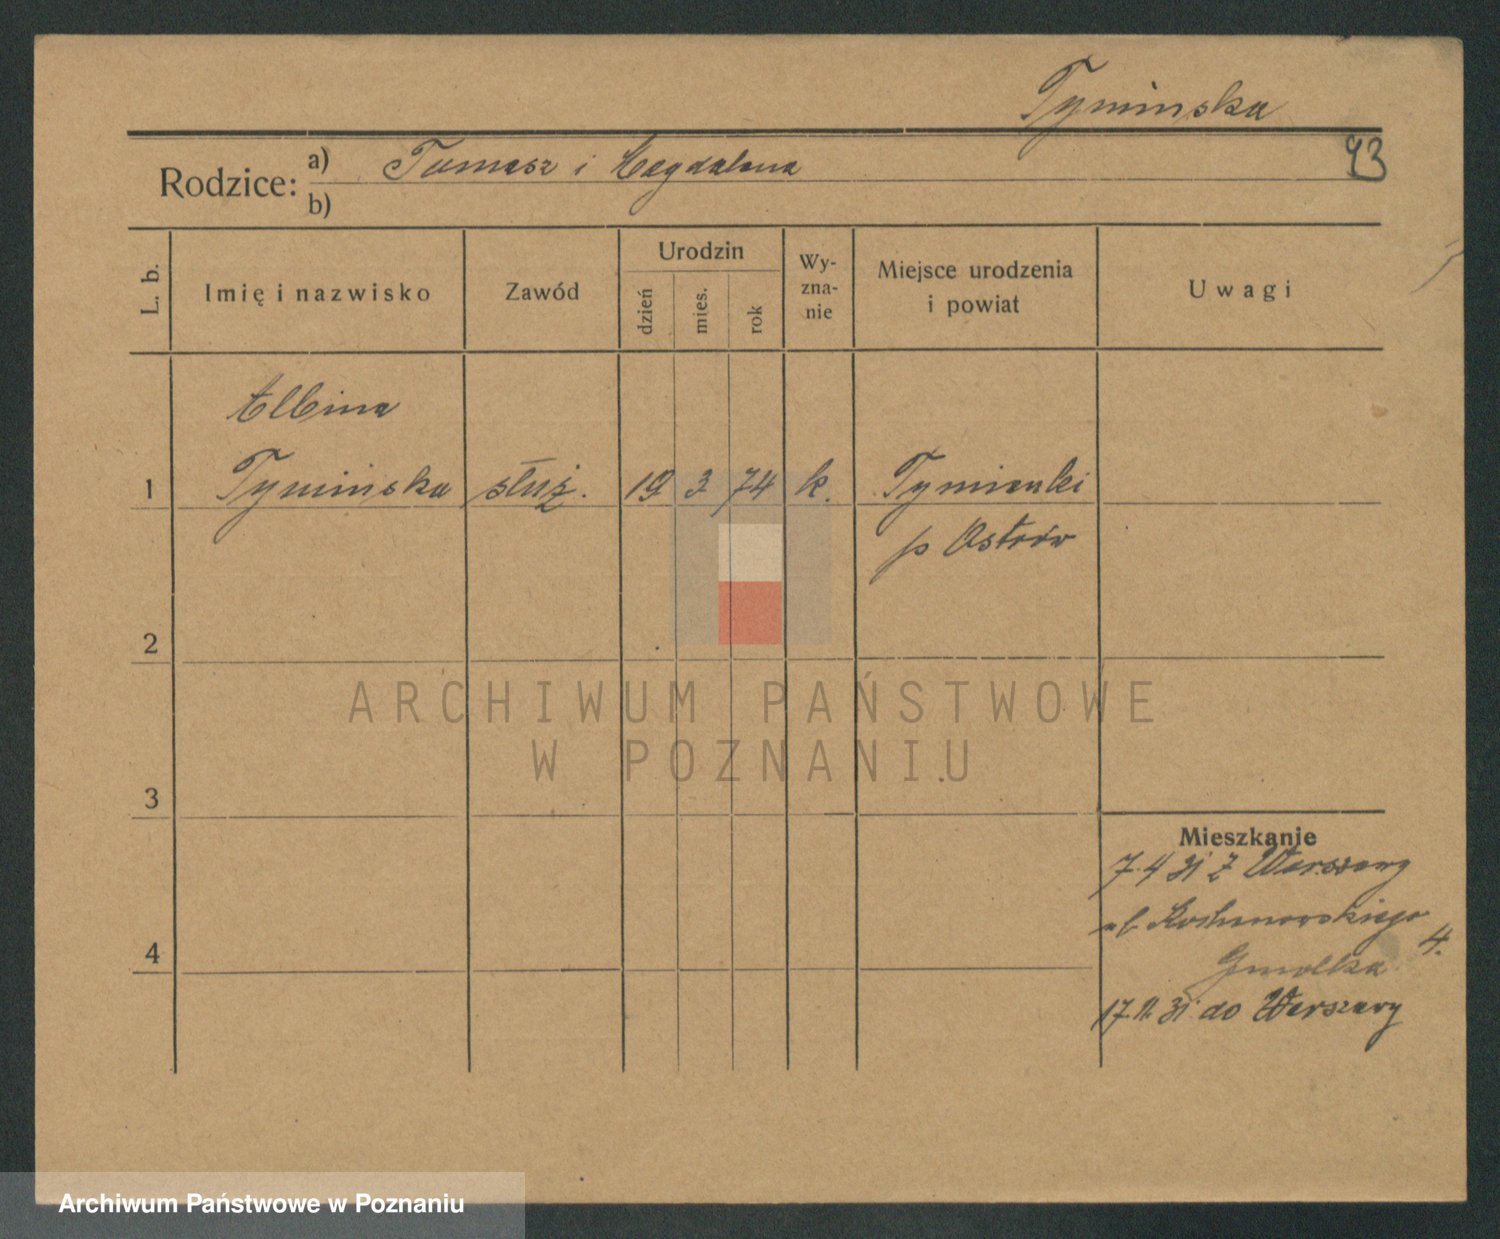 Tyminska
Rodzice:
a) Tomasz i Magdalena
93
b)
L. b.
Imię i nazwisko
Zawód
Urodzin
dzień
mies.
rok
Wy-
zna-
nie
Miejsce urodzenia
i powiat
Uwagi
Albina
1 Tymińska służ. 19 3 74 k. Tymianki
p Ostrów
2
ARCHIWUM PAŃSTWOWE
W POZNANIU
3
Mieszkanie
7.4 31 z Warszawy
4
4.
Gmolka
17.11.31 do Warszawy
Archiwum Państwowe w Poznaniu